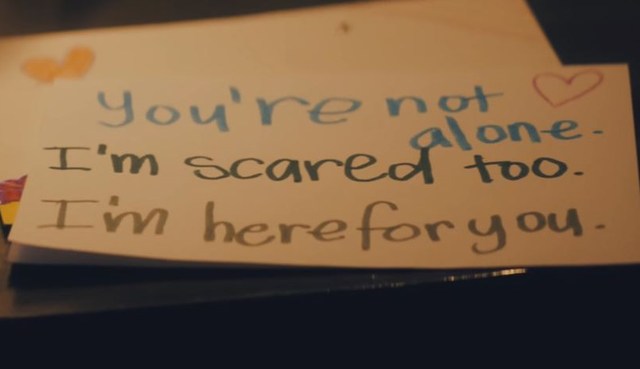 You're not
alone.
I'm scared too.
I'm here for you.